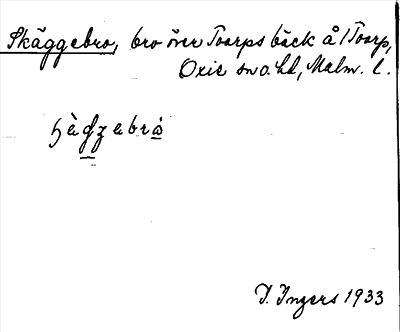 Skäggebro, bro över Toarps bäck å 1 Toarp,
Oxie sn o. hd, Malm. l.
I. Ingers 1933